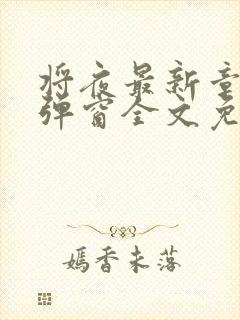 将夜最新章
弹窗全文免
嫣香未落